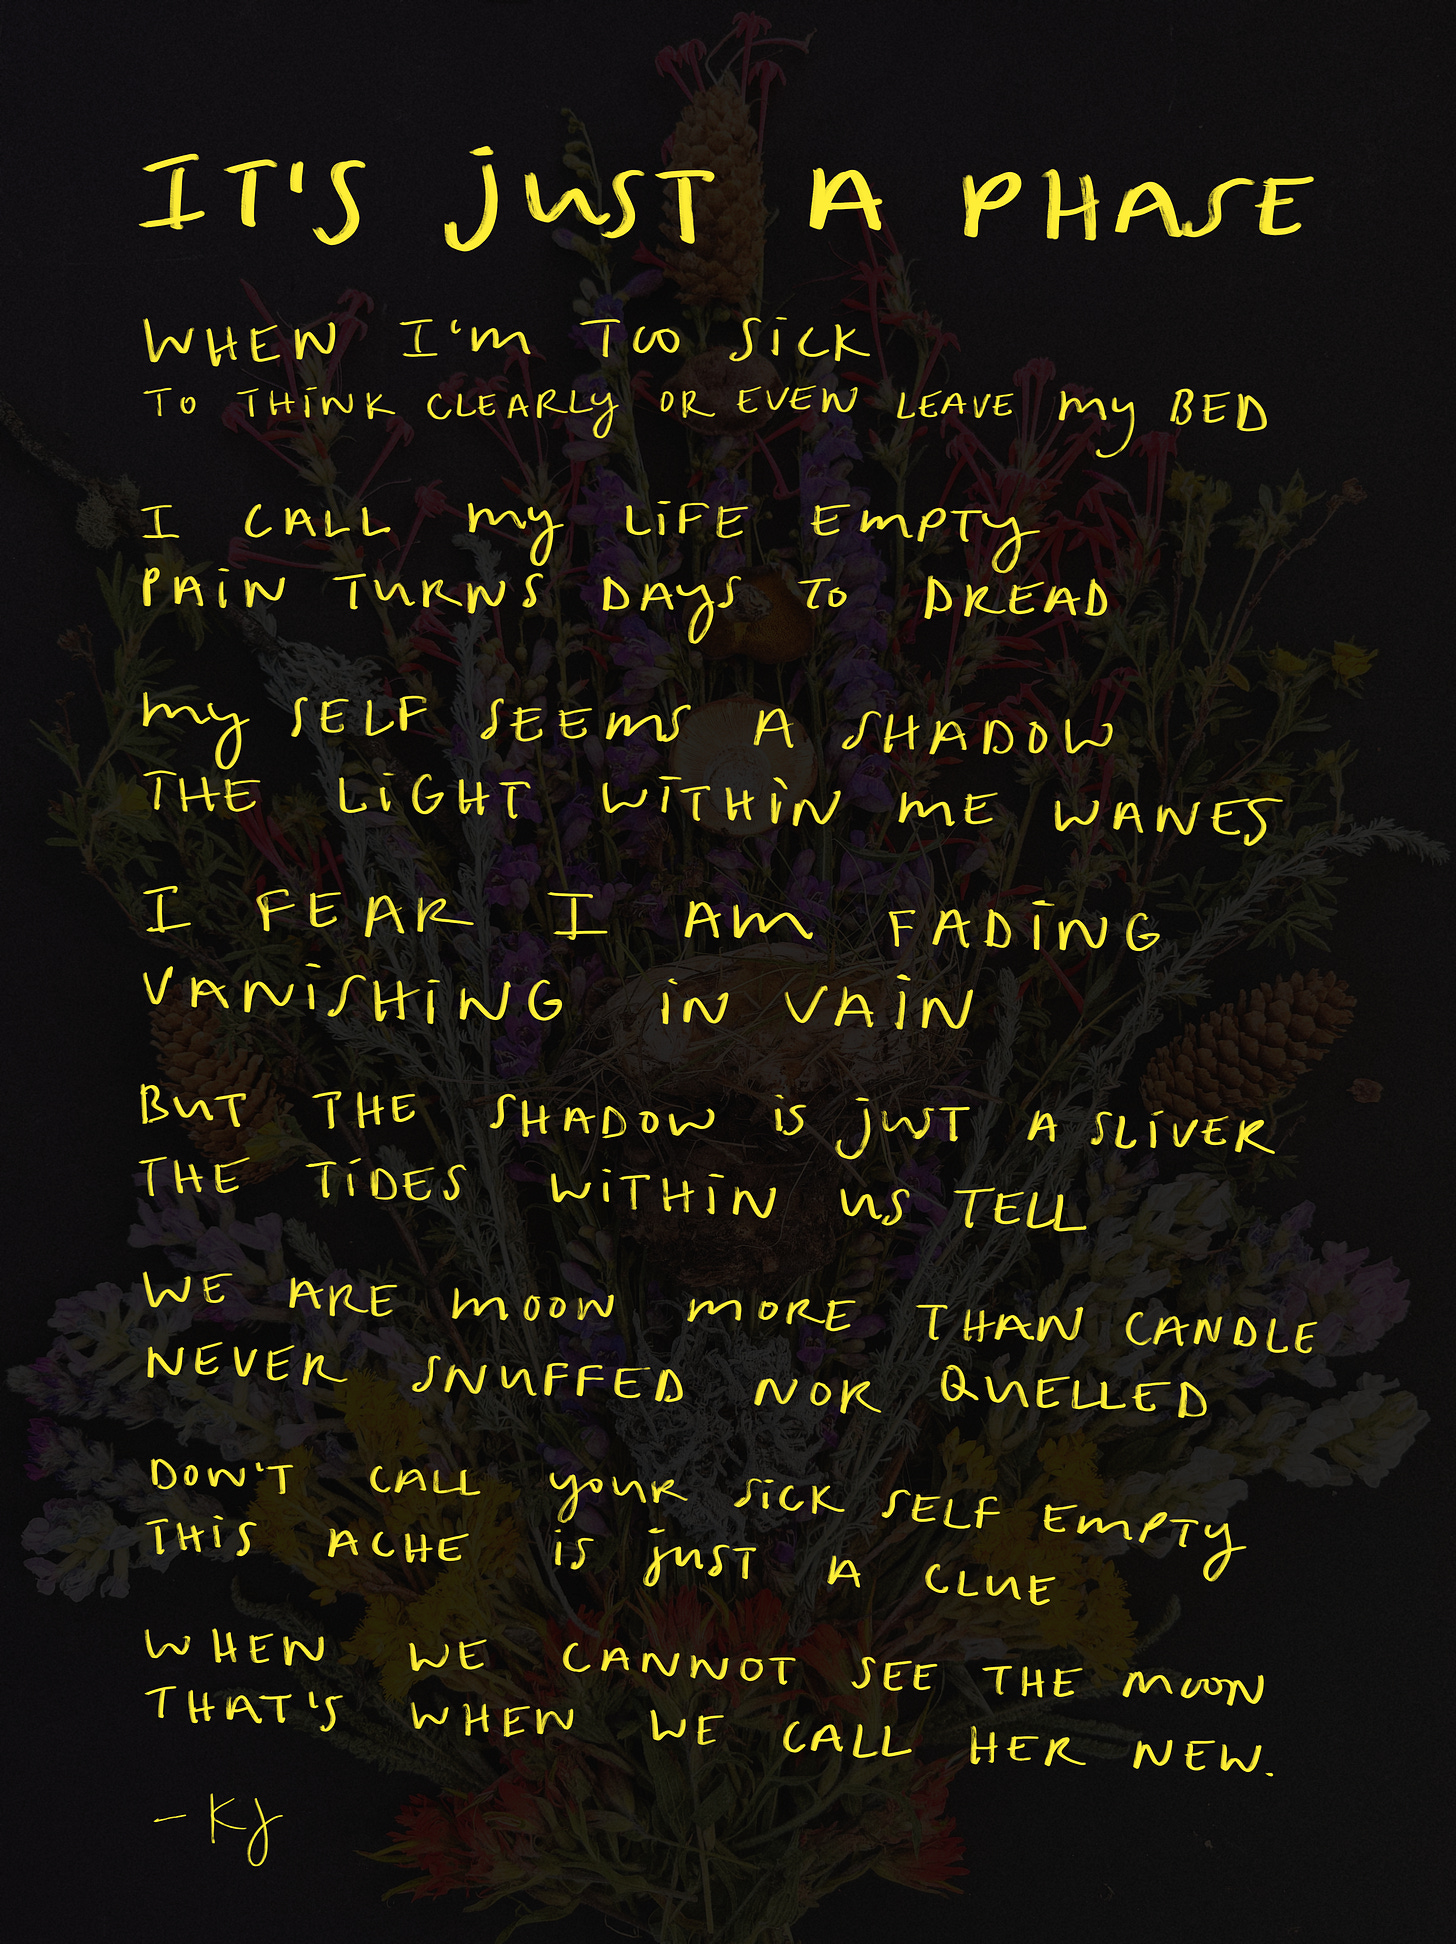 IT'S JUST A PHASE
WHEN I'M TOO SICK
TO THINK CLEARLY OR EVEN LEAVE MY BED
I CALL MY LIFE EMPTY
PAIN TURNS DAYS TO DREAD
MY SELF SEEMS A SHADOW
THE LIGHT WITHIN ME WANES
I FEAR I AM FADING
VANISHING IN VAIN
BUT THE SHADOW IS JUST A SLIVER
THE TIDES WITHIN US TELL
WE ARE MOON MORE THAN CANDLE
NEVER SNUFFED NOR QUELLED
DON'T CALL YOUR SICK SELF EMPTY
THIS ACHE IS JUST A CLUE
WHEN WE CANNOT SEE THE MOON
THAT'S WHEN WE CALL HER NEW.
- KJ